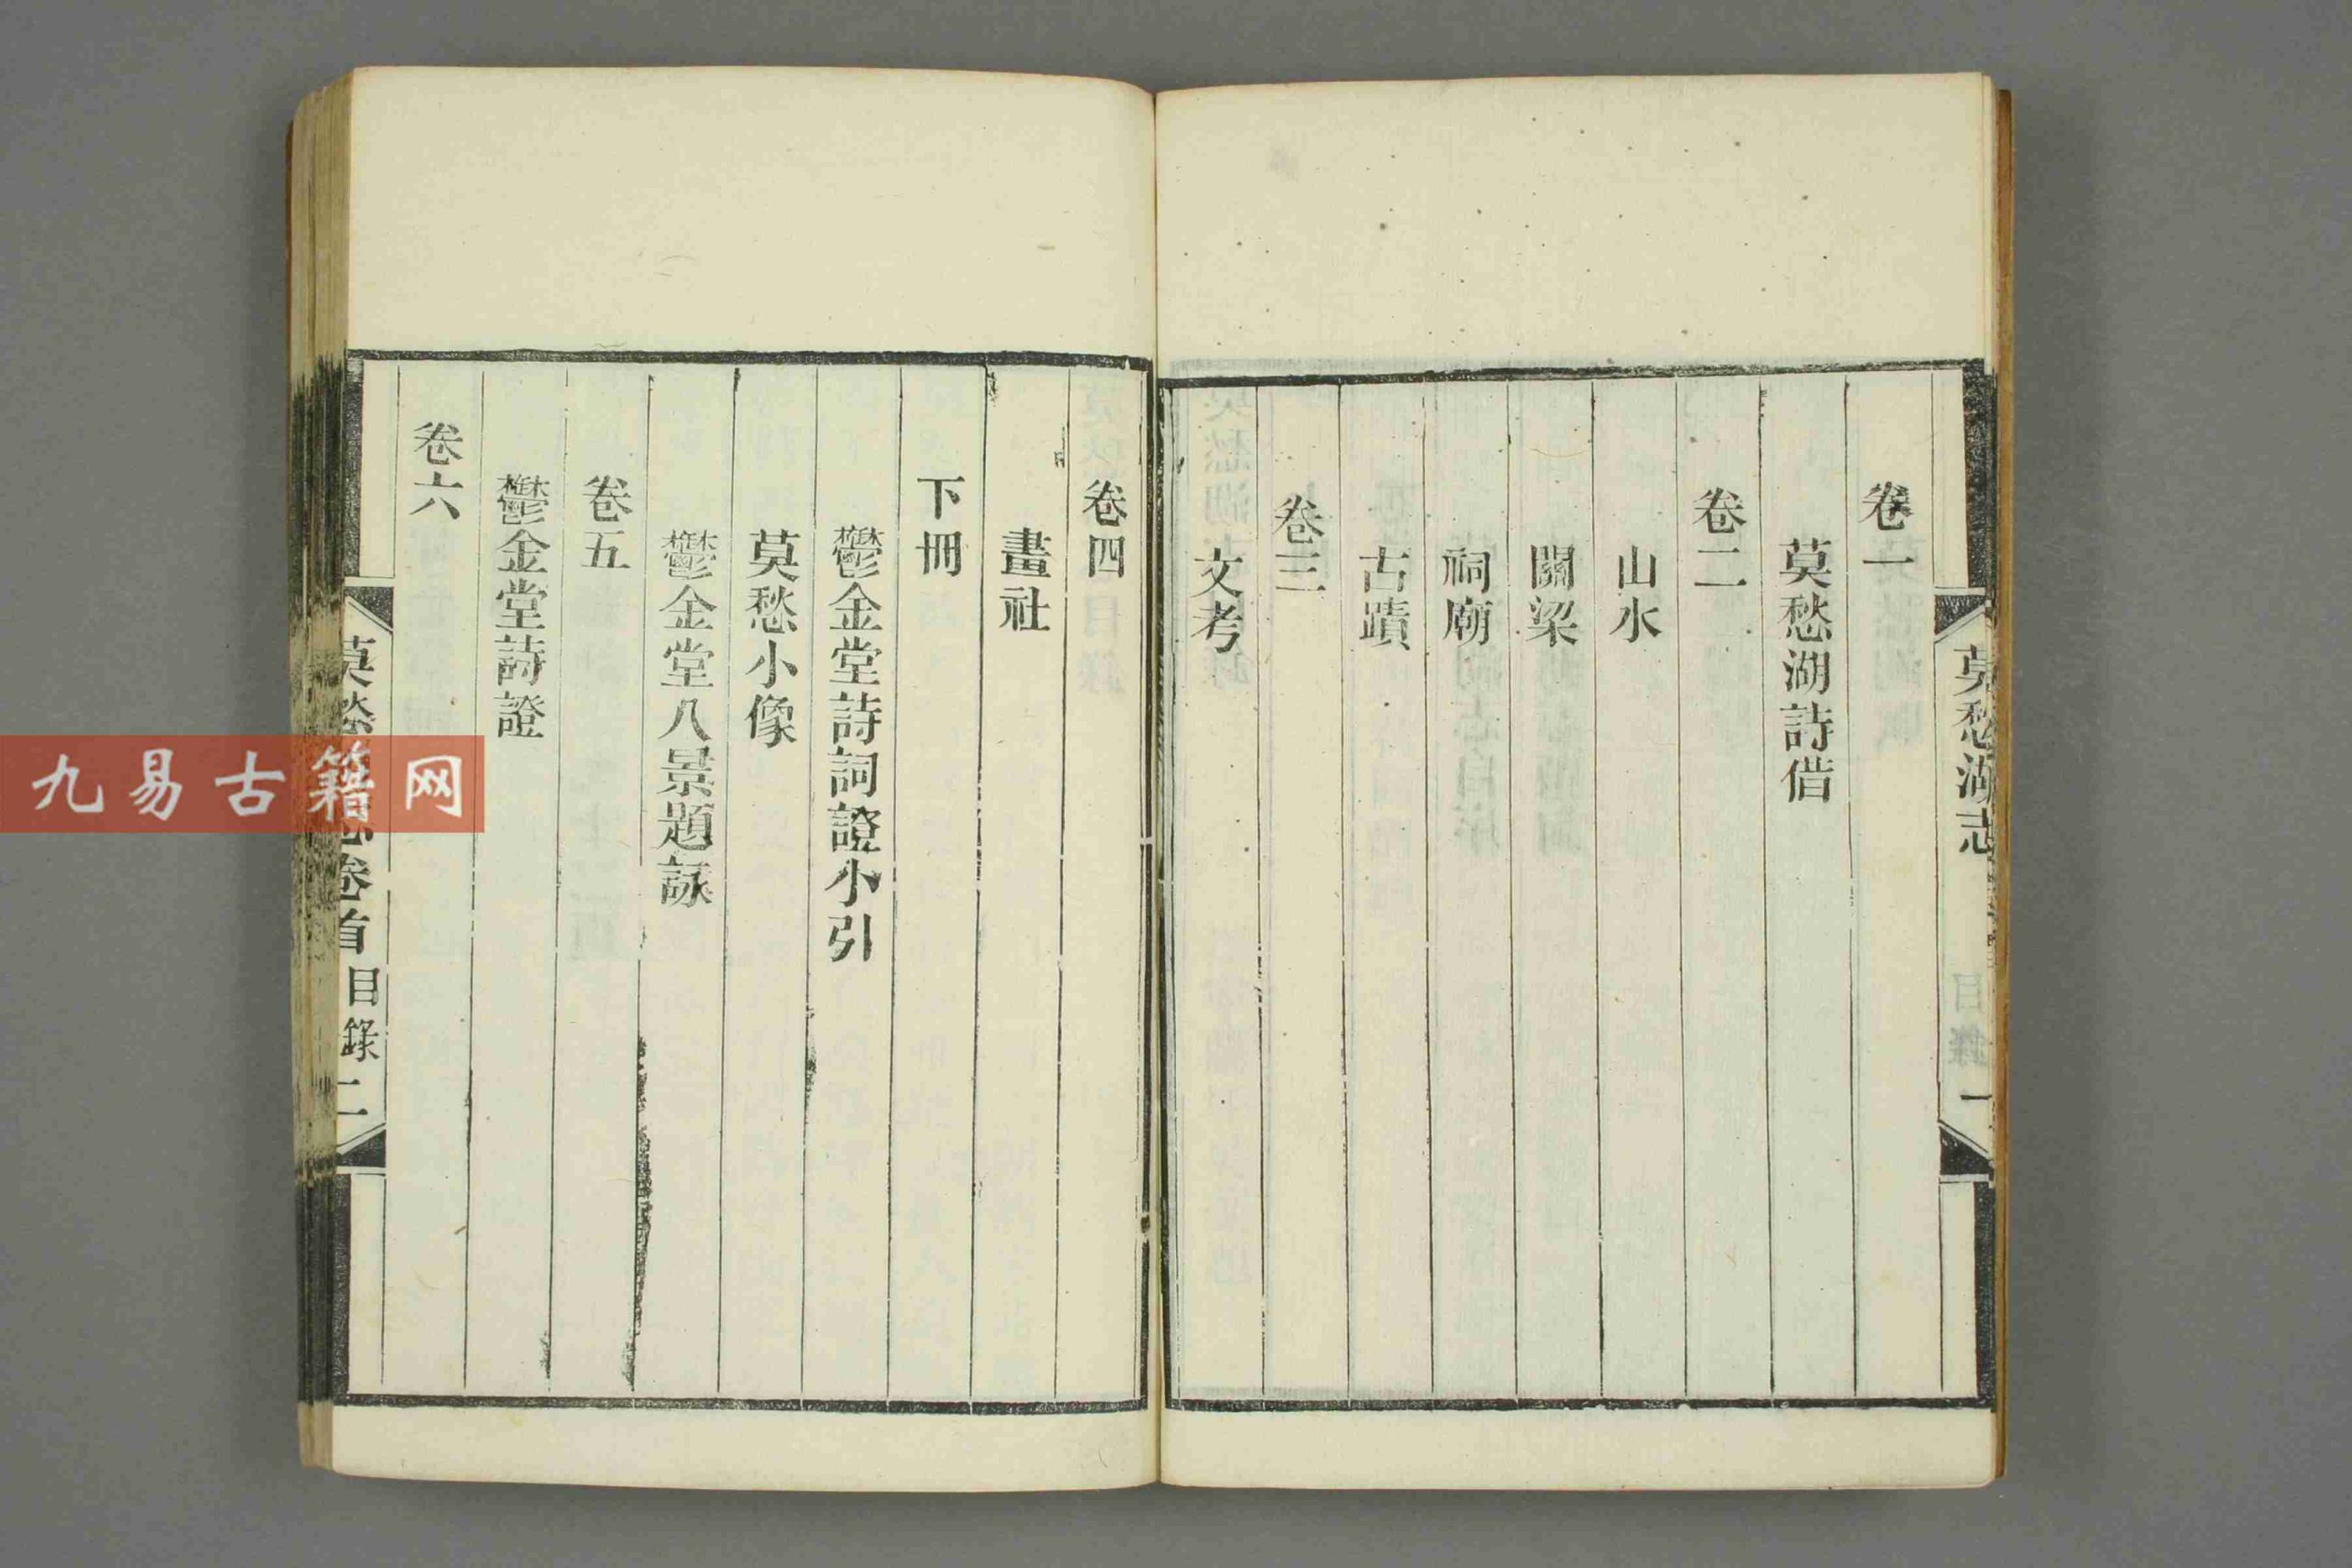 莫愁湖志
目錄
一
卷一
莫愁湖詩借
卷二
山水
關梁
祠廟
古蹟
卷三
文考
卷四
畫社
下冊
鬱金堂詩詞證小引
莫愁小像
鬱金堂八景題詠
卷五
鬱金堂詩證
卷六
莫愁
卷首
目錄
二
九易古籍网